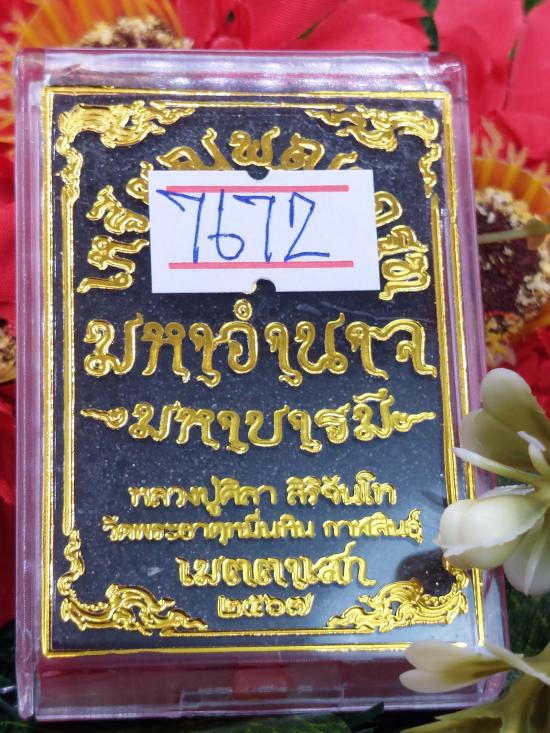 7672
มหาอำนาจ
มหาบารมี
หลวงปู่ศิลา สิริจันโท
วัดพระธาตุหมื่นหิน กาฬสินธุ์
เมตตเสก
๒๕๖๗